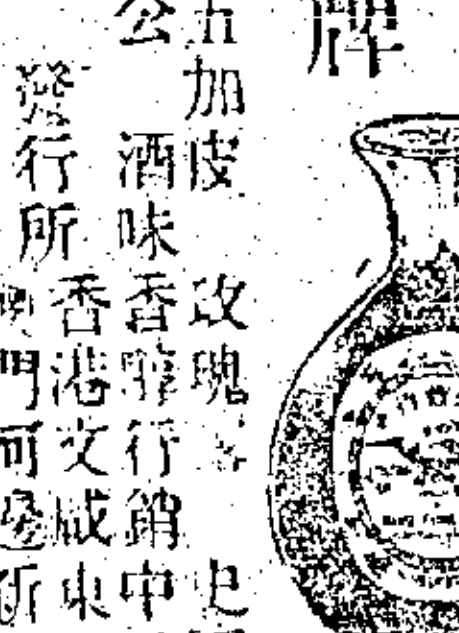 牌
五加皮 玫瑰 史
公 酒味香醇行銷中
發行所 香港文咸東
澳門河邊新